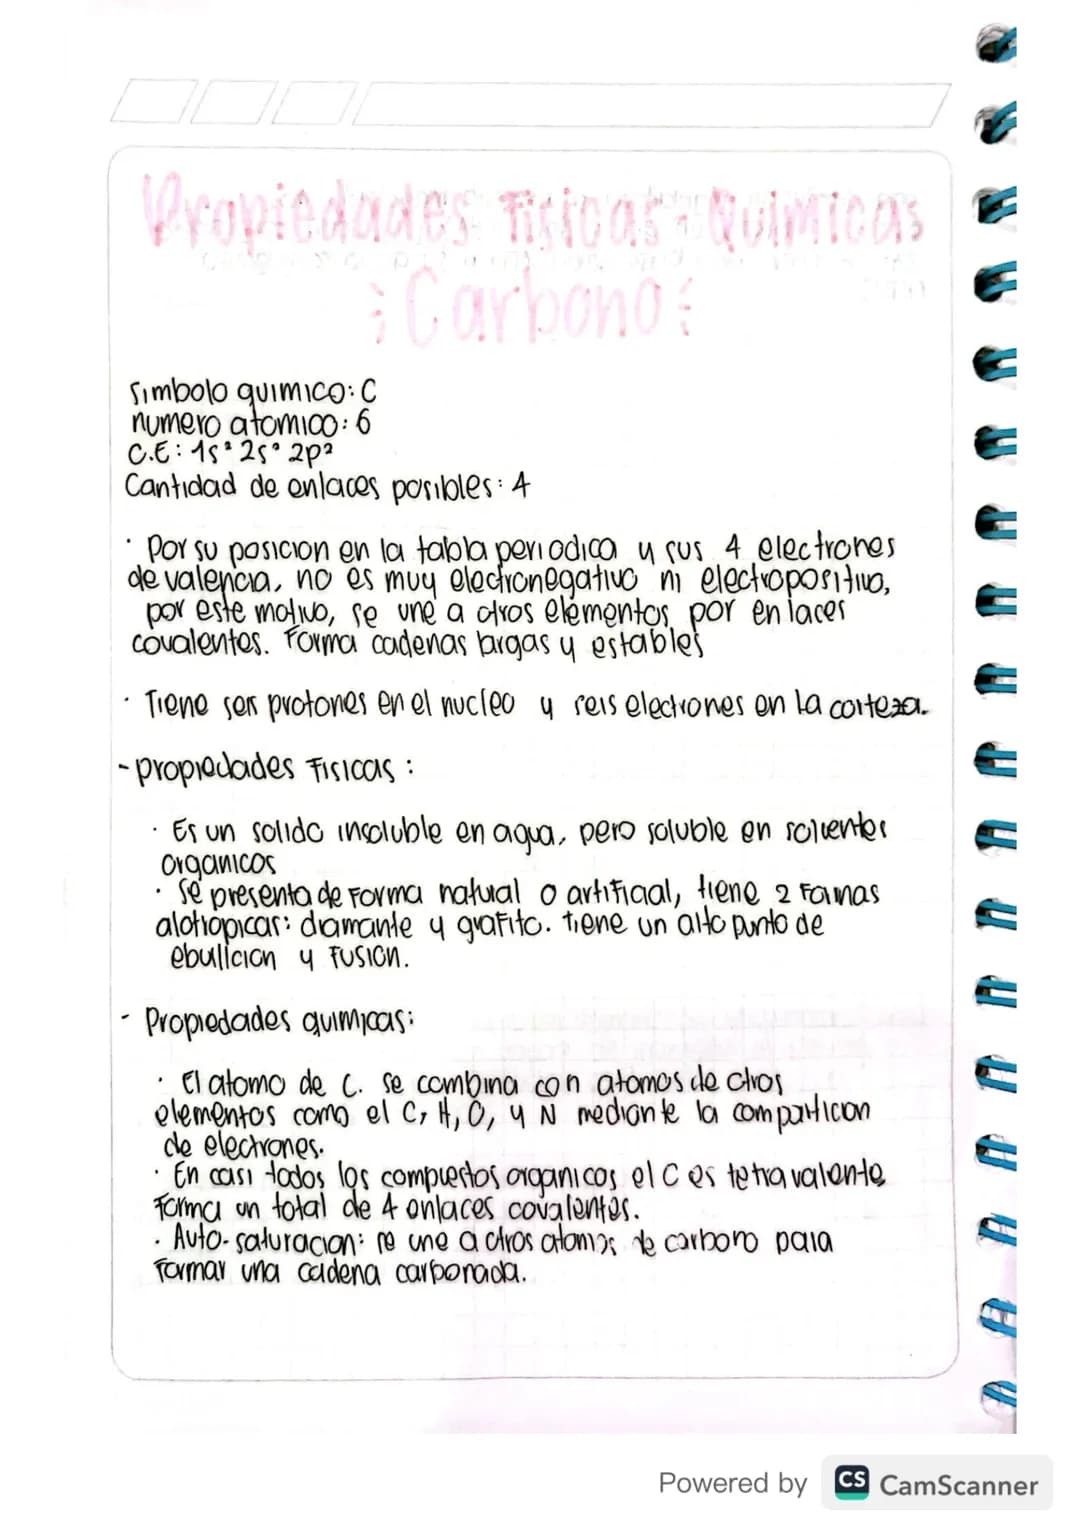 Propiedades Fisicas-Quimicas
Carbono
Simbolo quimico: C
numero atomico: 6
C.E: 1s² 2s² 2p²
Cantidad de enlaces posibles: 4
· Por su posicion en la tabla periodica y sus 4 electrones
de valencia, no es muy electronegativo ni electropositivo,
por este motivo, se une a otros elementos por enlaces
covalentes. Forma cadenas largas y estables
· Tiene seis protones en el nucleo y seis electrones en la corteza.
- propiedades Fisicas:
· Es un solido insoluble en agua, pero soluble en solventes
organicos
· Se presenta de forma natural o artificial, tiene 2 formas
alotropicas: diamante y grafito. tiene un alto punto de
ebullicion y fusion.
- Propiedades quimicas:
· El atomo de C. se combina con atomos de otros
elementos como el C, H, O, y N mediante la comparticion
de electrones.
· En casi todos los compuestos organicos el C es tetravalente
Forma un total de 4 enlaces covalentes.
· Auto-saturacion: se une a otros atomos de carbono para
formar una cadena carbonada.
Powered by CS CamScanner